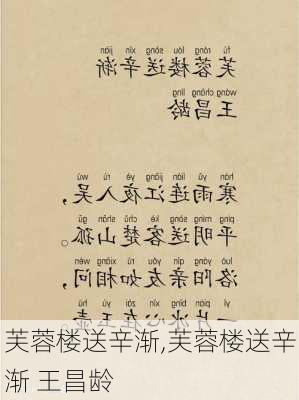 fú róng lóu sòng xīn jiàn
芙蓉楼送辛渐
wáng chāng líng
王昌龄
hán yǔ lián jiāng yè rù wú
寒雨连江夜入吴，
píng míng sòng kè chǔ shān gū
平明送客楚山孤。
luò yáng qīn yǒu rú xiāng wèn
洛阳亲友如相问，
yí
一片冰心在玉
芙蓉楼送辛渐,芙蓉楼送辛
渐 王昌龄